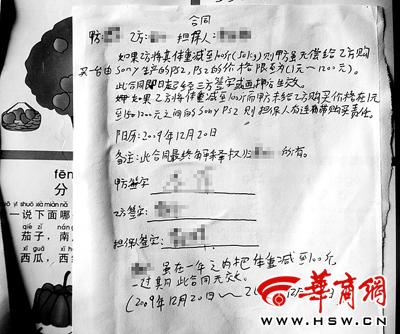 合同
甲方: 乙方: 担保人:
如果乙方将其体重减至100斤(50kg)则甲方无偿给乙方购
买一台由Sony生产的PS2, PS2的价格限至为(1元~1200元).
此合同即日起经三方签字或画押方生效.
如果乙方将体重减至100斤而甲方未给乙方购买价格在1元
至1200元之间的Sony PS2 则担保人有连带购买责任.
阳历:2009年12月20日
备注:此合同最终解释权归 所有.
甲方签字
乙方签字:
担保人签字:
虽在一年之内把体重减至100斤
一过期内此合同无效.
(2009年12月20日~ 12月
fēn
分
yì shuō xià miàn nǎ
一说下面哪
qié zi nán
茄子,南
xī guā xī
西瓜,西
华商网
WWW.HSW.CN